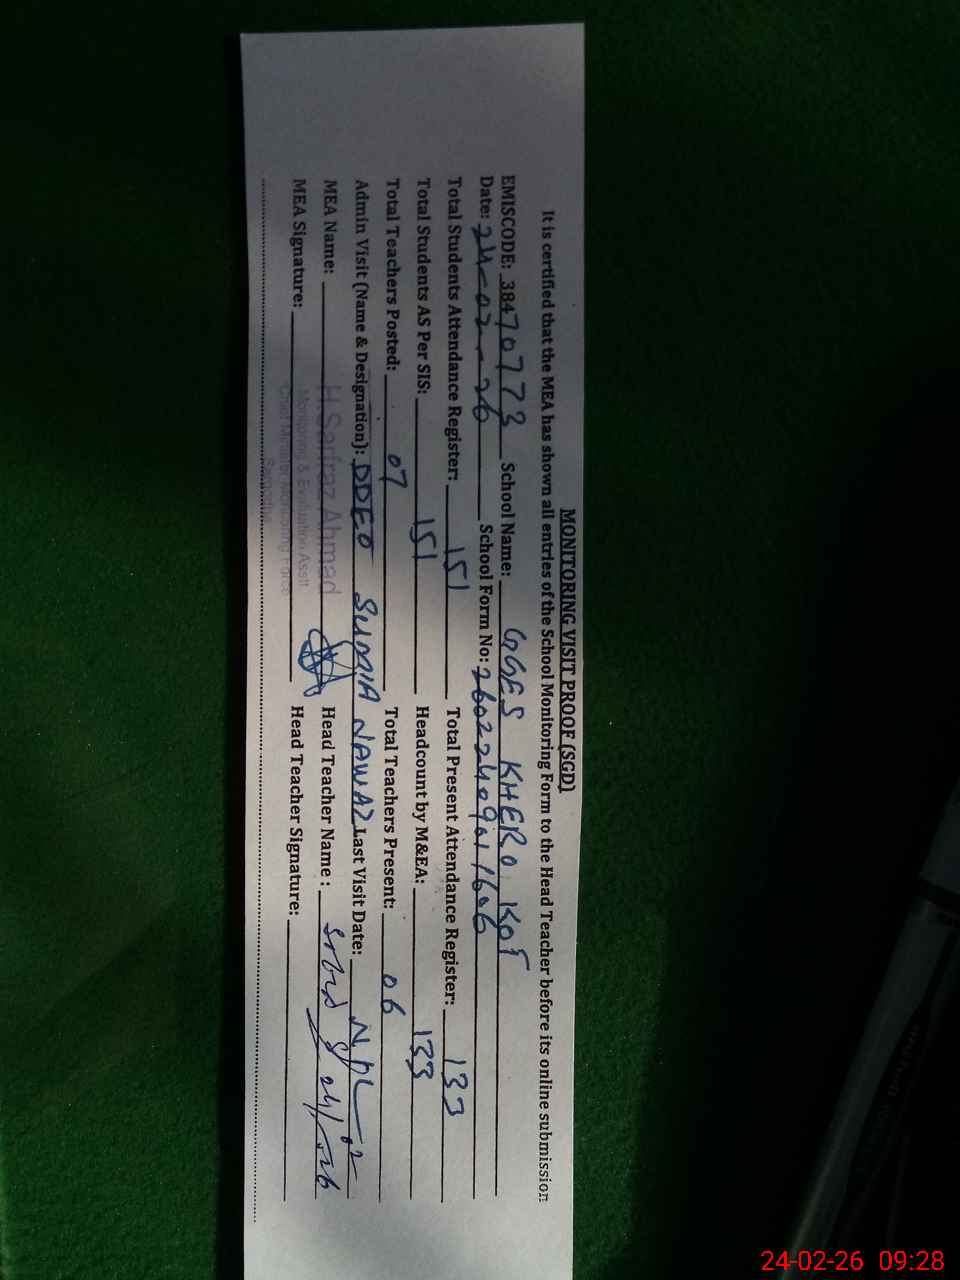 MONITORING VISIT PROOF (SGD)
It is certified that the MEA has shown all entries of the School Monitoring Form to the Head Teacher before its online submission
EMISCODE: 38470773 School Name: GGES KHERO KOT
Date: 24-02-26 School Form No: 26022409011606
Total Students Attendance Register: 151 Total Present Attendance Register: 133
Total Students AS Per SIS: 151 Headcount by M&EA: 133
Total Teachers Posted: 07 Total Teachers Present: 06
Admin Visit (Name & Designation): DDEO SUMIA NAWAZ Last Visit Date:
MEA Name: H.Sarfraz Ahmad Head Teacher Name :
Monitoring & Evaluation Asstt
MEA Signature: Head Teacher Signature:
Chief Minister Monitoring Force
Sargodha
24-02-26 09:28